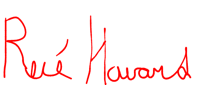 René Havard